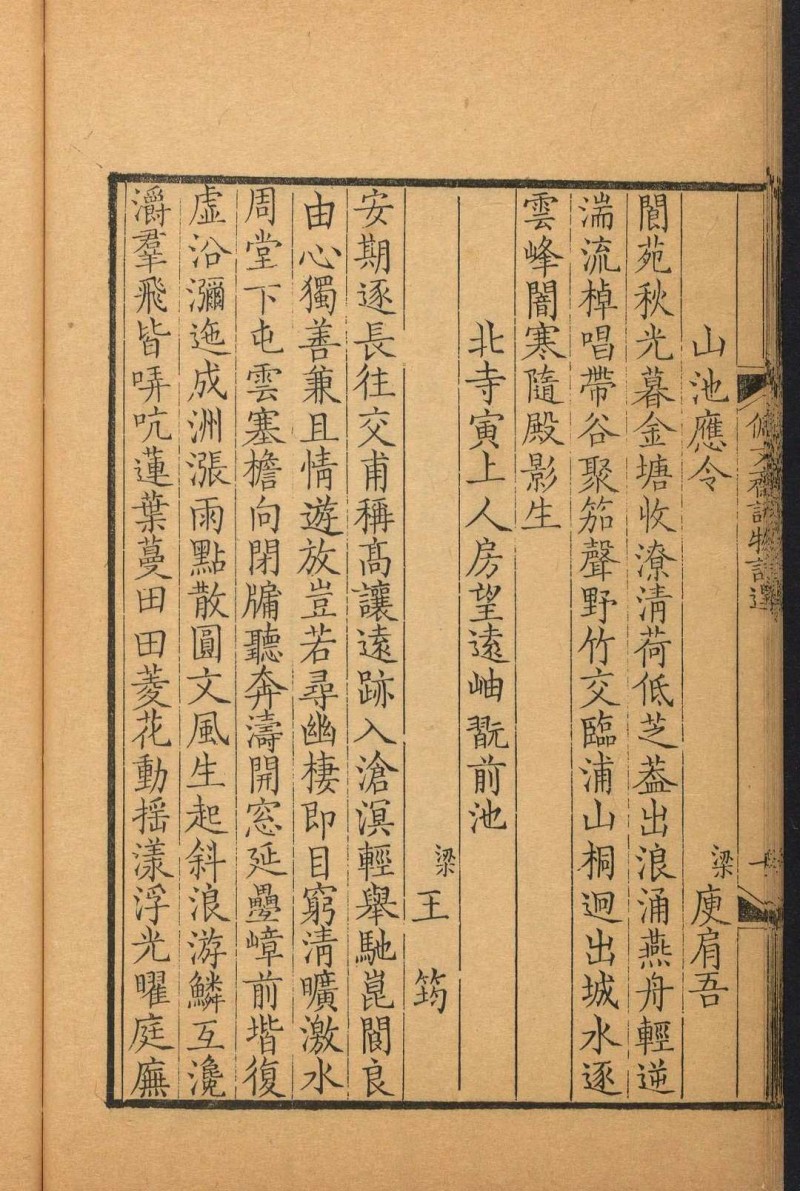 佩文齋詠物詩選 一
山池應令 梁庾肩吾
閬苑秋光暮金塘收潦淸荷低芝葢出浪涌燕舟輕逆
湍流棹唱帶谷聚笳聲野竹交臨浦山桐迴出城水逐
雲峰闇寒隨殿影生
北寺寅上人房望遠岫翫前池
梁王筠
安期逐長往交甫稱髙讓遠跡入滄溟輕舉馳崑閬良
由心獨善兼且情遊放豈若尋幽棲即目窮淸曠激水
周堂下屯雲塞檐向閉牖聽奔濤開窓延疊嶂前堦復
虛沿瀰迤成洲漲雨點散圓文風生起斜浪游鱗互瀺
灂羣飛皆哢吭蓮葉蔓田田菱花動揺漾浮光曜庭廡